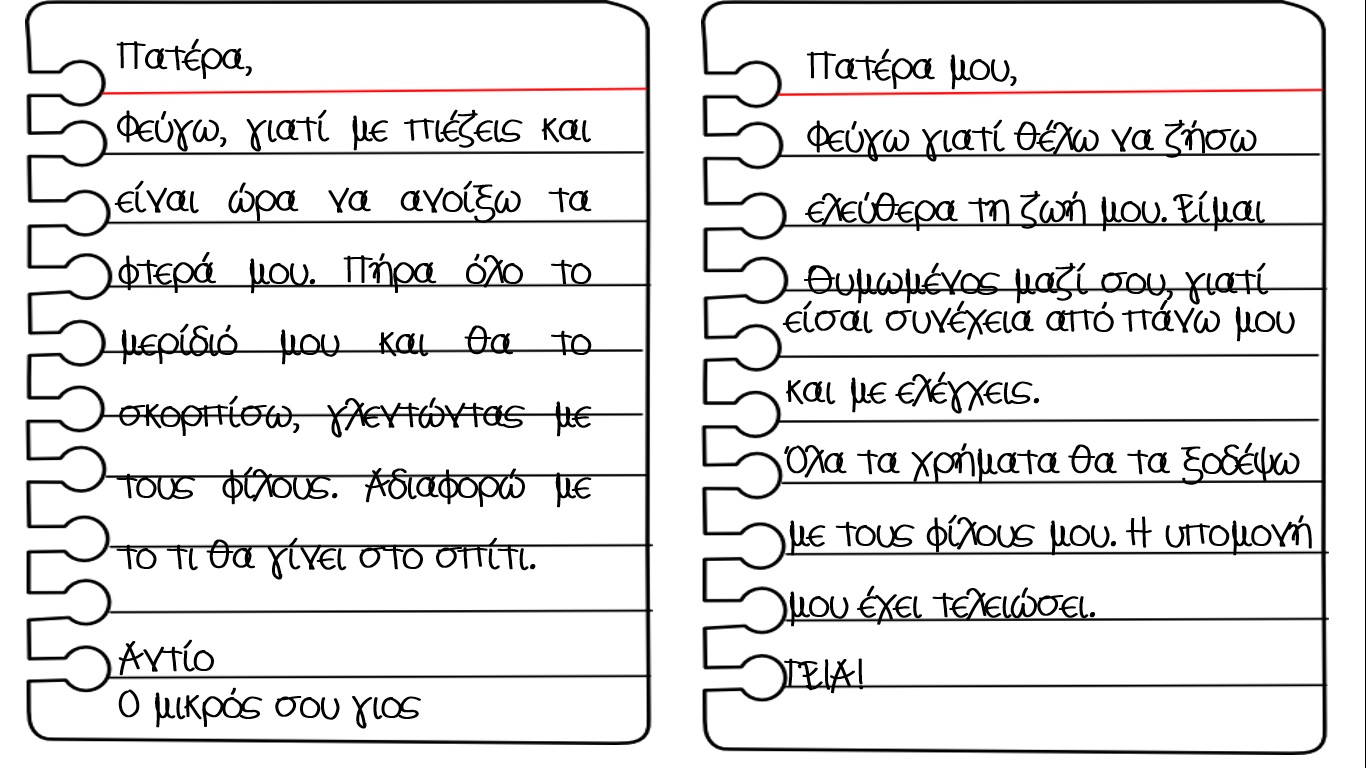 Πατέρα,
Φεύγω, γιατί με πιέζεις και
είναι ώρα να ανοίξω τα
φτερά μου. Πήρα όλο το
μερίδιό μου και θα το
σκορπίσω, γλεντώντας με
τους φίλους. Αδιαφορώ με
το τι θα γίνει στο σπίτι.
Αντίο
Ο μικρός σου γιος
Πατέρα μου,
Φεύγω γιατί θέλω να ζήσω
ελεύθερα τη ζωή μου. Είμαι
θυμωμένος μαζί σου, γιατί
είσαι συνέχεια από πάνω μου
και με ελέγχεις.
Όλα τα χρήματα θα τα ξοδέψω
με τους φίλους μου. Η υπομονή
μου έχει τελειώσει.
ΓΕΙΑ!